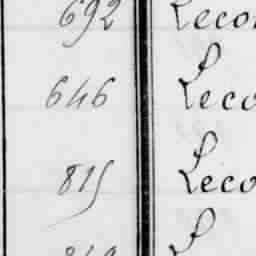 692 Lecon
646 Leco
815 Leco